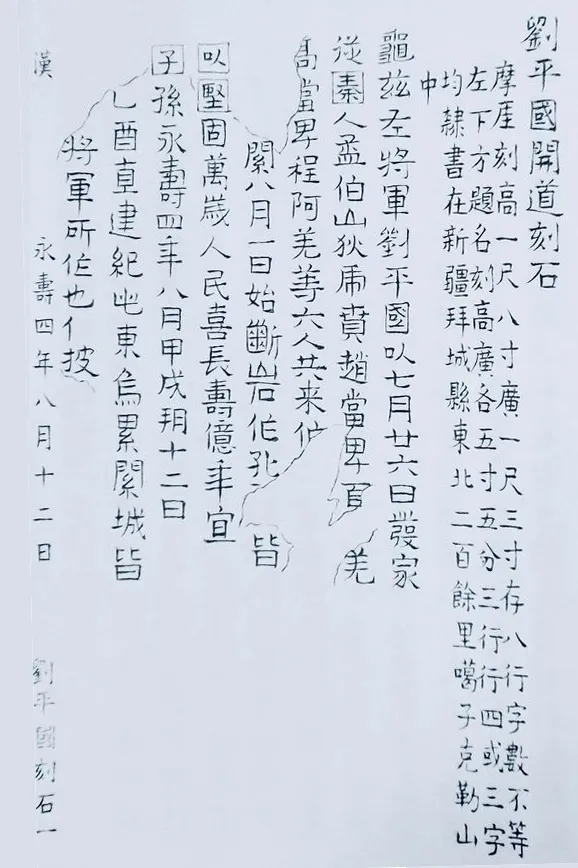 劉平國開道刻石
摩厓刻高一尺八寸廣一尺三寸存八行字數不等
左下方題名刻高廣各五寸五分三行行四或三字
均隸書在新疆拜城縣東北二百餘里噶子克勒山
中
龜茲左將軍劉平國以七月廿六日發家
從秦人孟伯山狄虎賁趙當卑 羌
當卑程阿羌等六人共来作
關八月一日始斷岩作孔 皆
以堅固萬歲人民喜長壽億年宜
子孫永壽四年八月甲戌朔十二日
乙酉直建紀此東烏累關城皆
將軍所作也 披
漢 永壽四年八月十二日 劉平國刻石一